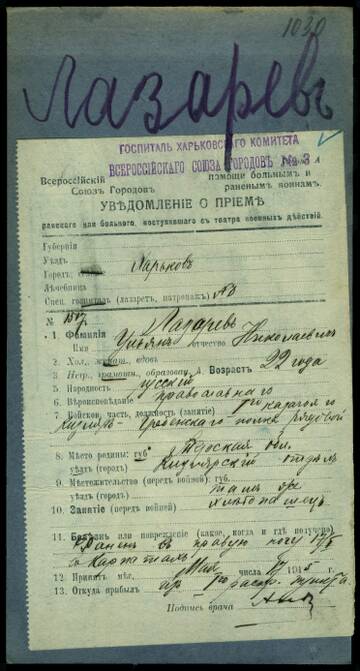 1030
Лазаревъ
ГОСПИТАЛЬ ХАРЬКОВСКАГО КОМИТЕТА
ВСЕРОССІЙСКАГО СОЮЗА ГОРОДОВЪ № 3
Всероссійскій Союзъ Городовъ
помощи больнымъ и раненымъ воинамъ.
УВѢДОМЛЕНІЕ О ПРІЕМѢ
раненаго или больного, поступившаго съ театра военныхъ дѣйствій.
Губернія
Уѣздъ
Городъ Харьковъ
Лечебница
Спец. госпиталь (лазаретъ, патронажъ) №3
№
1. Фамилія Лазаревъ
Имя отчество Николаевичъ
2. Хол., женат., вдовъ
3. Негр., грамотн., образовац. 4. Возрастъ 22 года
5. Народность русскій
6. Вѣроисповѣданіе православнаго
7. Войсков. часть, должность (занятіе) 1го
Кизляро-Гребенского полка рядовой
8. Мѣсто родины: губ. Терская обл.
уѣздъ (город.) Кизлярскій отдѣлъ
9. Мѣстожительство (передъ войной): губ. тамъ же
уѣздъ (город.)
10. Занятіе (передъ войной) хлѣбопашецъ
11. Болѣзнь или поврежденіе (какое, когда и гдѣ получено)
Раненъ въ правую ногу
въ Карпатахъ
12. Принятъ мѣс. Мая числа 1915 г.
13. Откуда прибылъ распр. пункта
Подпись врача